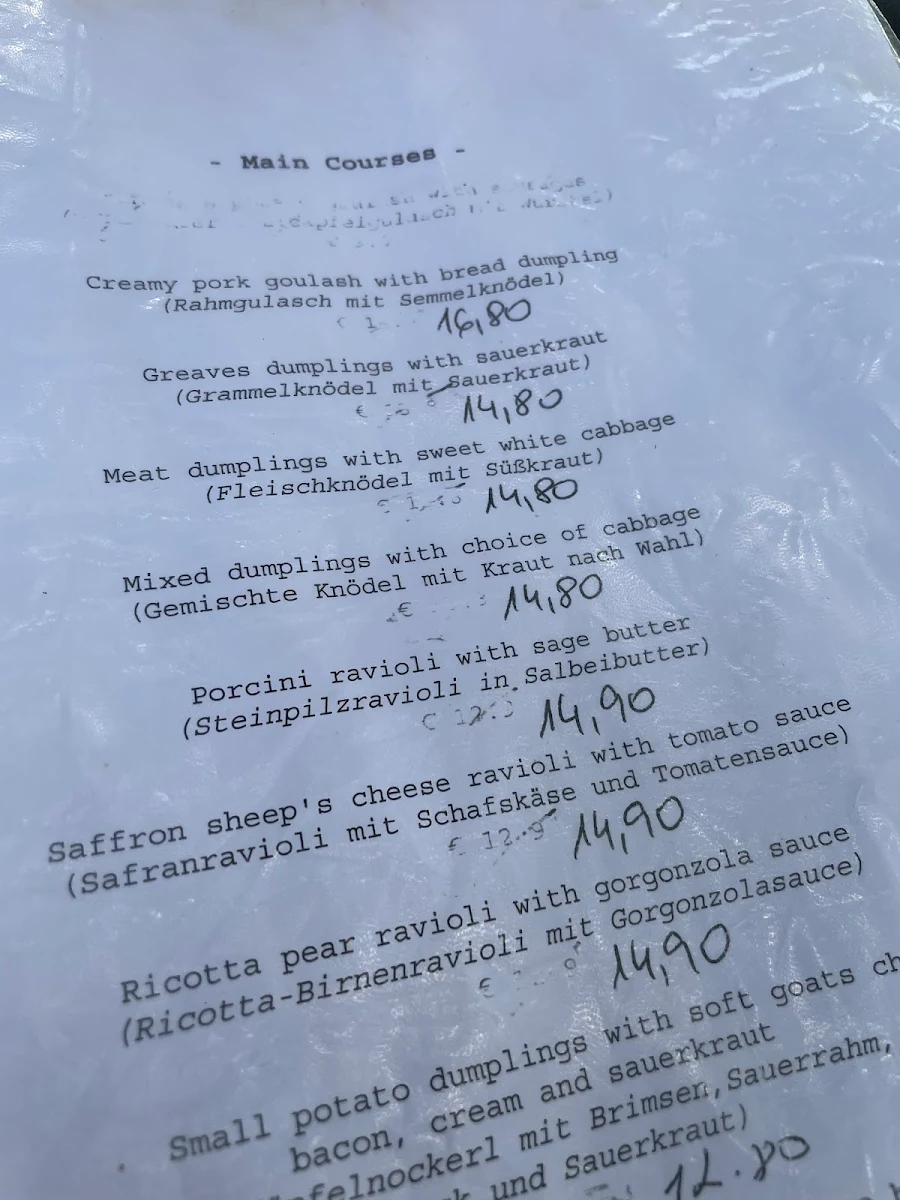 - Main Courses -
Creamy pork goulash with bread dumpling
(Rahmgulasch mit Semmelknödel)
€ 16,80
Greaves dumplings with sauerkraut
(Grammelknödel mit Sauerkraut)
€ 14,80
Meat dumplings with sweet white cabbage
(Fleischknödel mit Süßkraut)
€ 14,80
Mixed dumplings with choice of cabbage
(Gemischte Knödel mit Kraut nach Wahl)
€ 14,80
Porcini ravioli with sage butter
(Steinpilzravioli in Salbeibutter)
€ 14,90
Saffron sheep's cheese ravioli with tomato sauce
(Safranravioli mit Schafskäse und Tomatensauce)
€ 14,90
Ricotta pear ravioli with gorgonzola sauce
(Ricotta-Birnenravioli mit Gorgonzolasauce)
€ 14,90
Small potato dumplings with soft goats ch
bacon, cream and sauerkraut
felnockerl mit Brimsen,Sauerrahm,
und Sauerkraut)